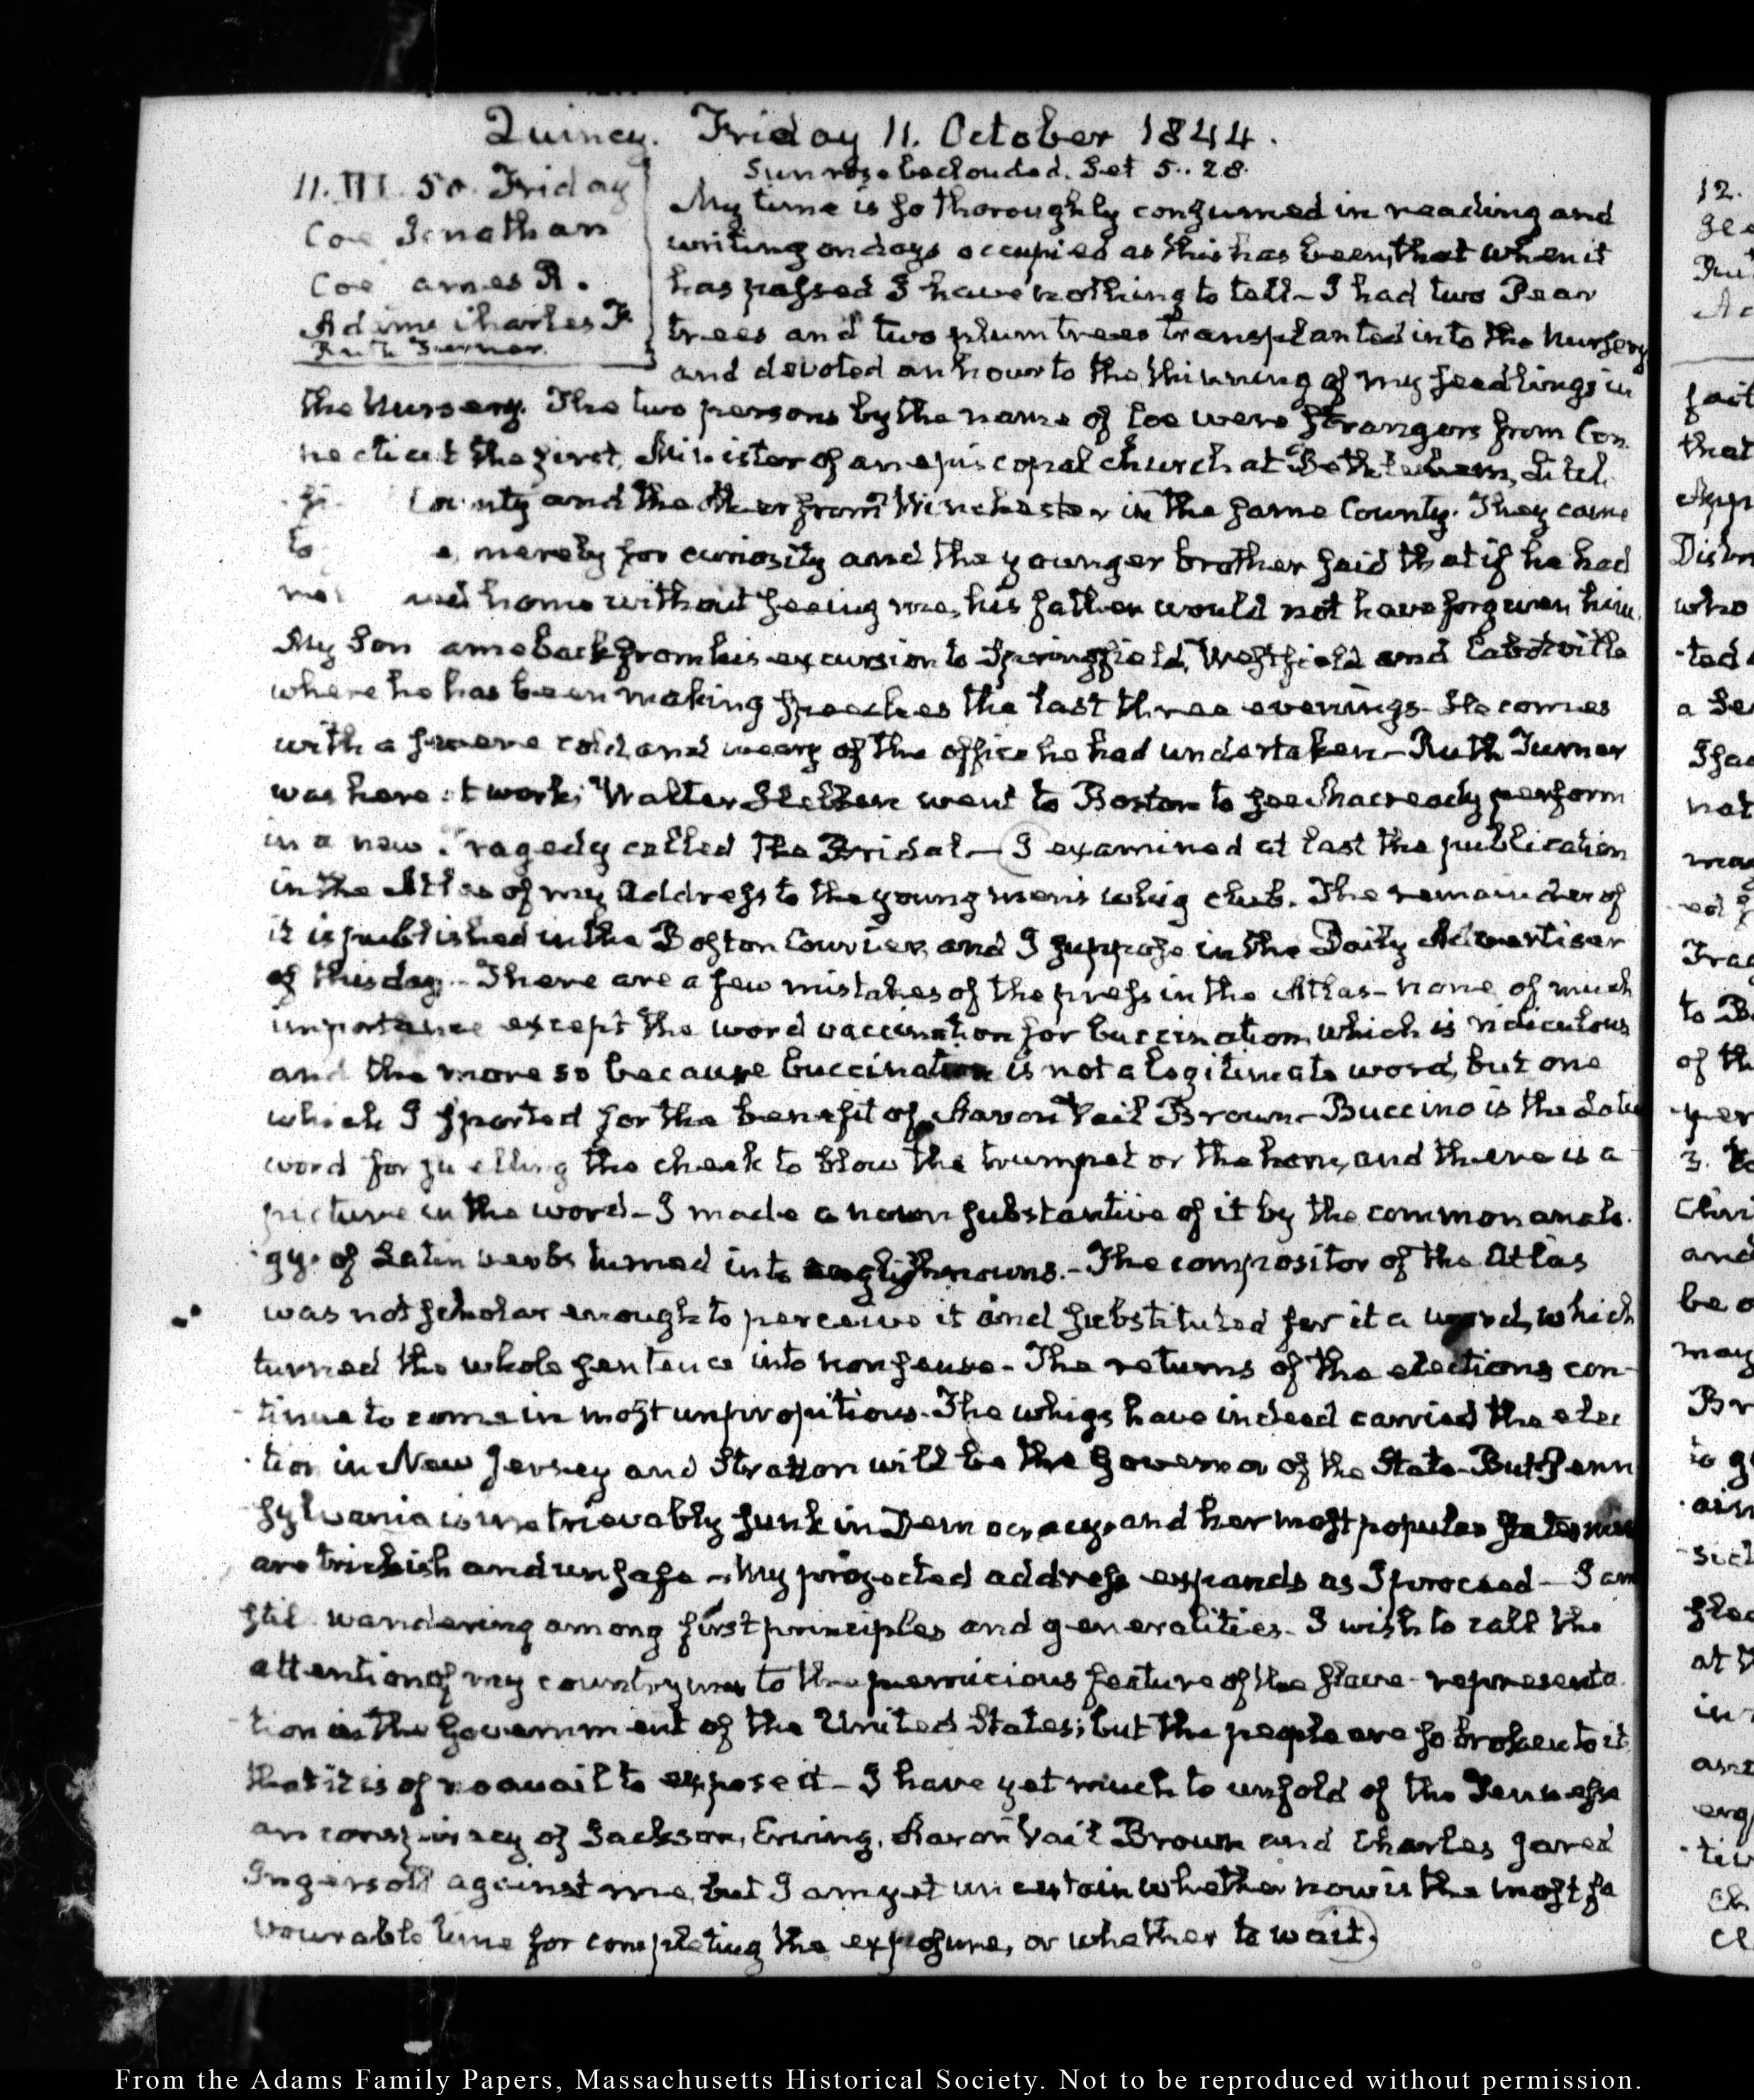 Quincy. Friday 11. October 1844.
Sun rose beclouded. Set 5..28.
11. III. 50. Friday
Coe Jonathan
Coe ames R.
Adams Charles F
Ruth Turner.
My time is so thoroughly consumed in reading and
writing on days occupied as this has been, that when it
has passed I have nothing to tell— I had two Pear
trees and two plum trees transplanted into the Nursery
and devoted an hour to the thinning of my seedlings in
the Nursery. The two persons by the name of Coe were strangers from Con
necticut the first, Minister of an episcopal church at Bethlehem, Litch
fi County and the other from Winchester in the same County. They came
to e, merely for curiosity and the younger brother said that if he had
home without seeing me, his father would not have forgiven him.
My Son ame back from his excursion to Springfield, Westfield and Cabotville
where he has been making speeches the last three evenings. He comes
with a severe cold, and weary of the office he had undertaken— Ruth Turner
was here at work; Walter went to Boston to see Macready perform
in a new Tragedy called The Bridal.— I examined at last the publication
in the Atlas of my Address to the young men's whig club. The remainder of
it is published in the Boston Courier, and I suppose in the Daily Advertiser
of this day.— There are a few mistakes of the press in the Atlas— none of much
importance except the word vaccination for buccination, which is ridiculous
and the more so because buccination is not a legitimate word, but one
which I sported for the benefit of Aaron Vail Brown— Buccino is the Latin
word for swelling the cheek to blow the trumpet or the horn, and there is a
picture in the word— I made a noun substantive of it by the common analo-
gy. of Latin verbs turned into english nouns.— The compositor of the Atlas
was not scholar enough to perceive it and substituted for it a word, which
turned the whole sentence into nonsense— The returns of the elections con-
-tinue to come in most unpropitious. The whigs have indeed carried the elec
-tion in New Jersey and Stratton will be the Governor of the State— But Penn
sylvania is irretrievably sunk in Democracy, and her most popular
are trickish and unsafe— My projected address expands as I proceed— I am
still wandering among first principles and generalities— I wish to call the
attention of my countrymen to the pernicious feature of the slave-representa
-tion in the Government of the United States; but the people are so broken to it
that it is of no avail to expose it— I have yet much to unfold of the Tennesse
an conspiracy of Jackson, Erving, Aaron Vail Brown and Charles Jared
Ingersoll against me, but I am yet uncertain whether now is the most fa
vourable time for completing the exposure, or whether to wait.
12.
that
who
-ted
not
of th
3.
and
may
Br
at t
in
From the Adams Family Papers, Massachusetts Historical Society. Not to be reproduced without permission.